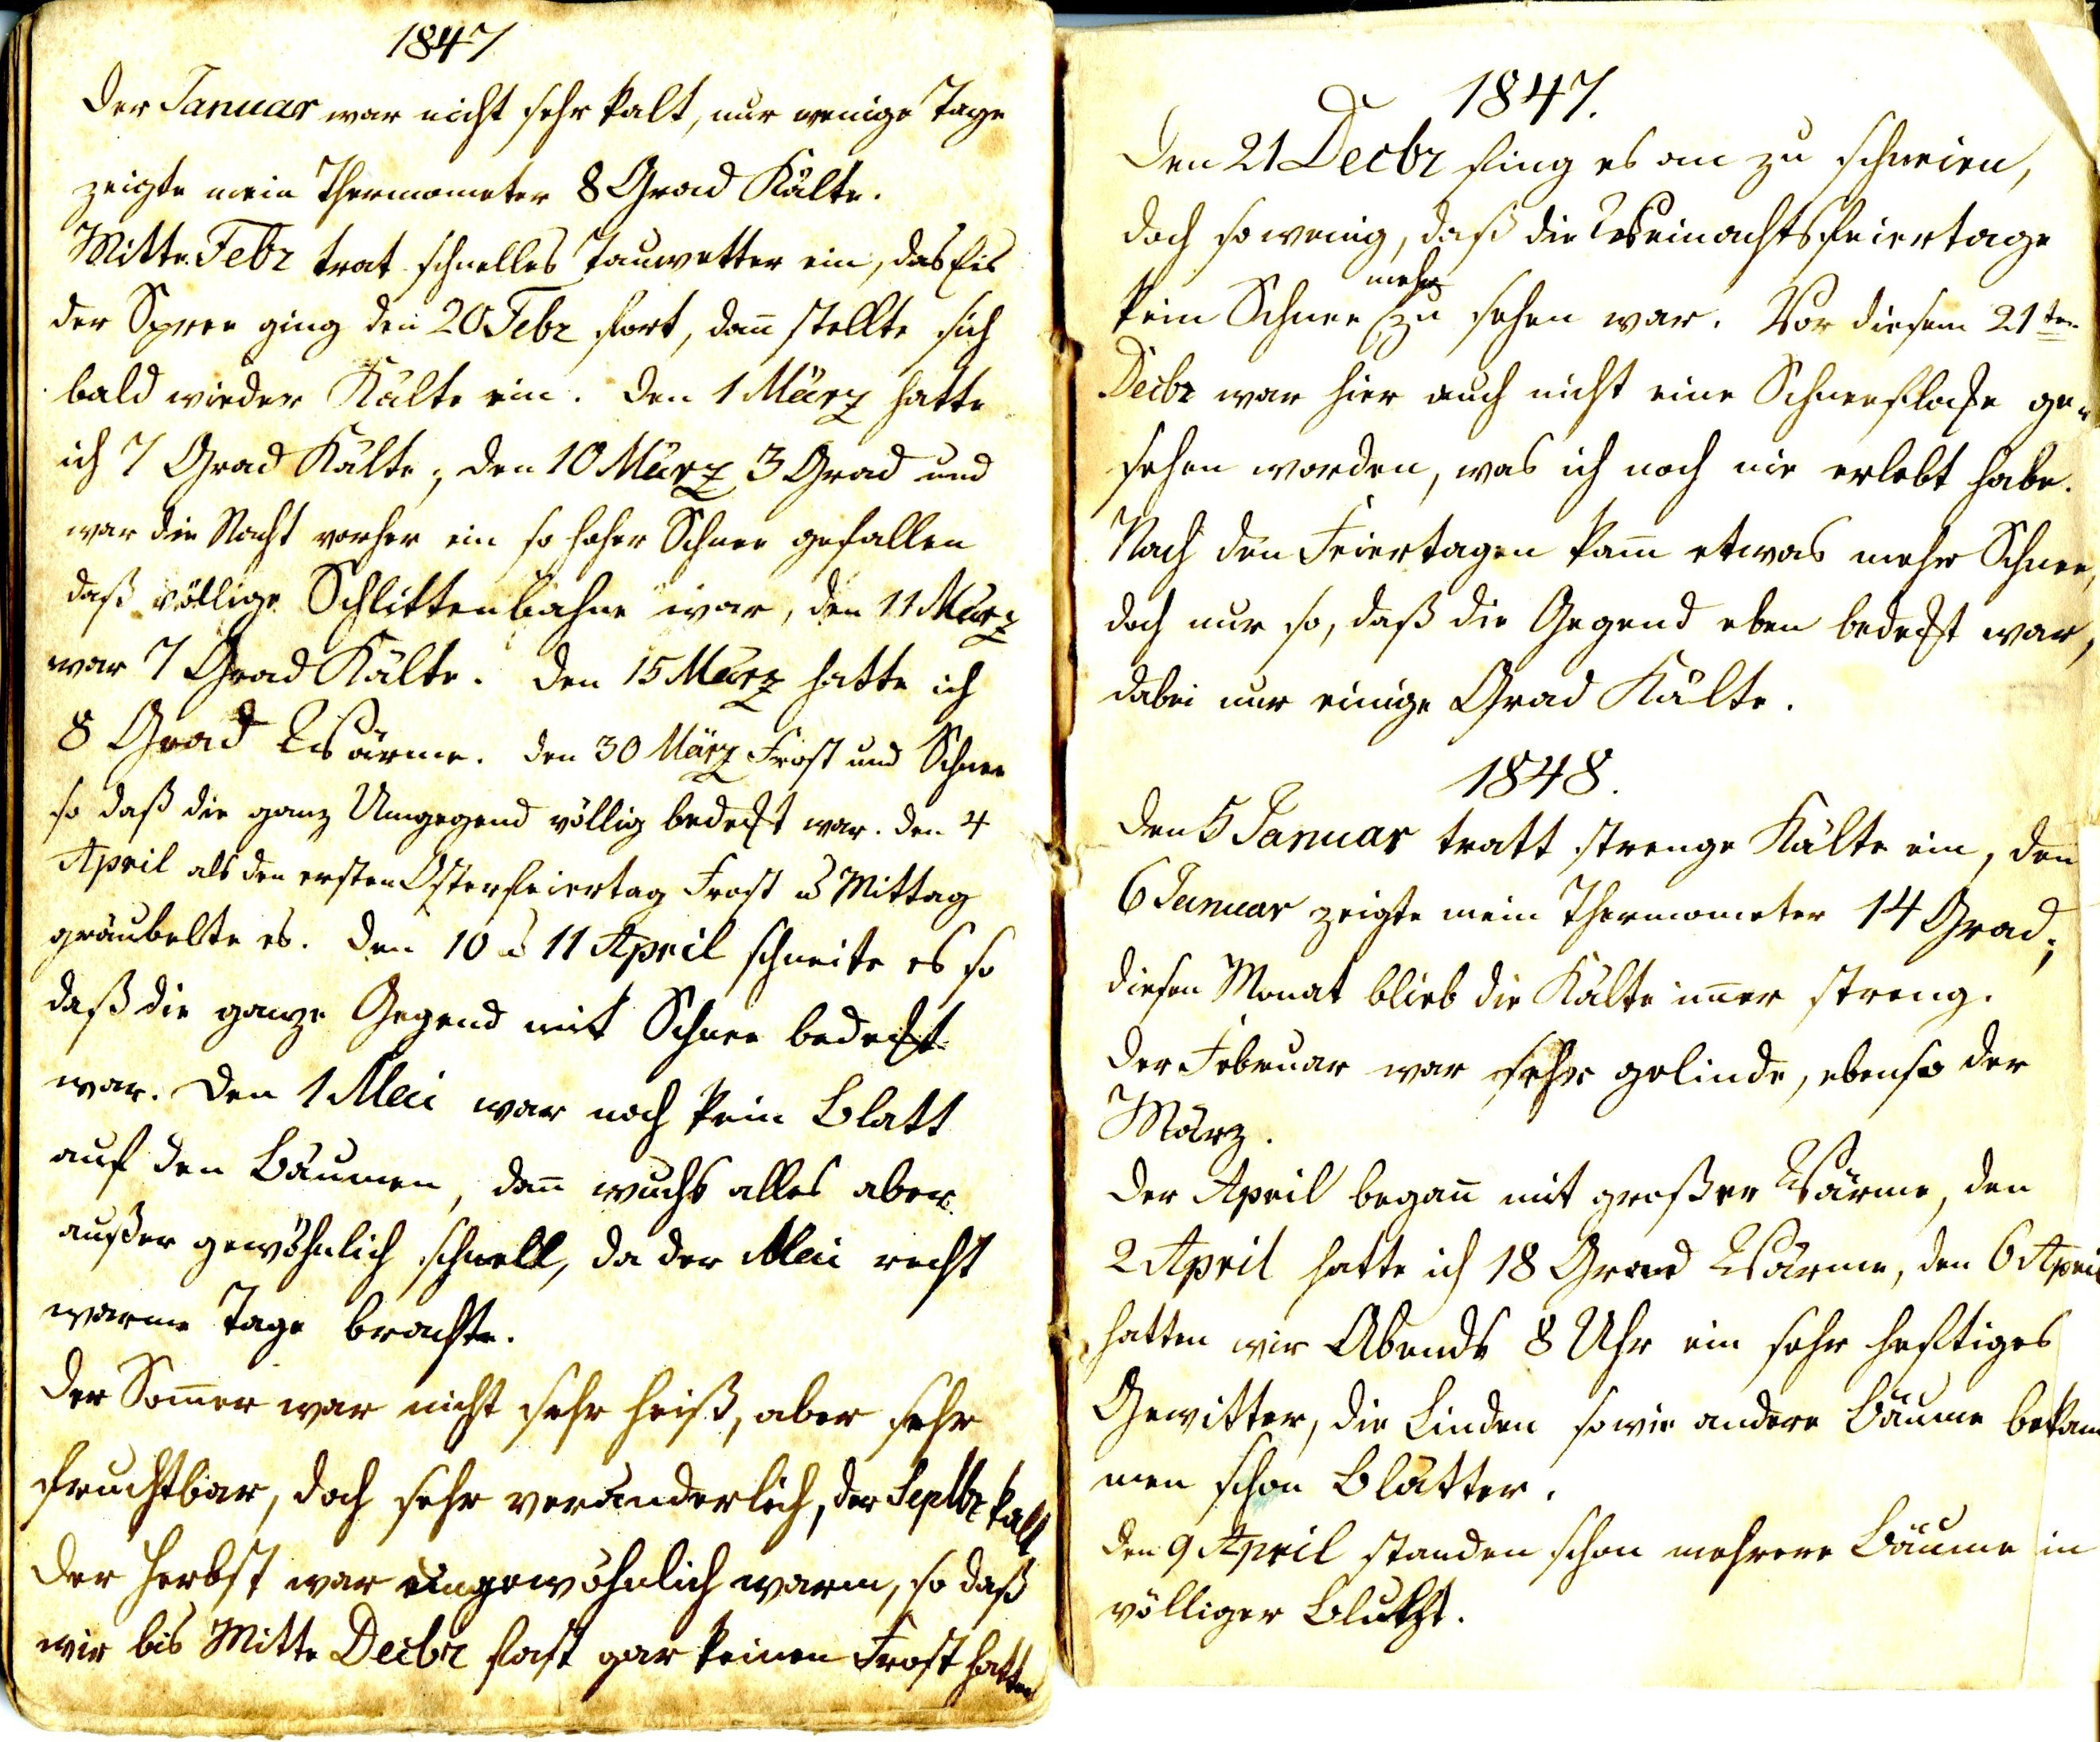 1847
Der Januar war nicht sehr kalt, nur wenige Tage
zeigte mein Thermometer 8 Grad Kälte.
Mitte Febr trat schnelles Tauwetter ein, das Eis
der Spree ging den 20 Febr fort, dan̄ stellte sich
bald wieder Kälte ein. Den 1 März hatte
ich 7 Grad Kälte, den 10 März 3 Grad und
war die Nacht vorher ein so hoher Schnee gefallen
daß völlige Schlittenbahne war, den 11 März
war 7 Grad Kälte. Den 15 März hatte ich
8 Grad Wärme. Den 30 März Frost und Schnee
so daß die ganz Umgegend völlig bedeckt war. Den 4
April als den ersten Osterfeiertag Frost u Mittag
gräubelte es. Den 10 u 11 April schneite es so
daß die ganze Gegend mit Schnee bedeckt
war. Den 1 Mai war noch kein Blatt
auf den Bäumen, dan̄ wuchs alles aber
außer gewöhnlich schnell, da der Mai recht
warme Tage brachte.
Der Som̄er war nicht sehr heiß, aber sehr
fruchtbar, doch sehr veränderlich, der Septbr kalt
Der Herbst war ungewöhnlich warm, so daß
wir bis Mitte Decbr fast gar keinen Frost hatten
1847.
Den 21 Decbr fing es an zu schneien,
doch so wenig, daß die Weinachtsfeiertage
mehr
kein Schnee zu sehen war. Vor diesem 21ten
Decbr war hier auch nicht eine Schneeflocke ge-
sehen worden, was ich noch nie erlebt habe.
Nach den Feiertagen kam̄ etwas mehr Schnee,
doch nur so, daß die Gegend eben bedeckt war,
dabei nur einige Grad Kälte.
1848.
Den 5 Januar tratt strenge Kälte ein, den
6 Januar zeigte mein Thermometer 14 Grad;
diesen Monat blieb die Kälte im̄er streng.
Der Februar war sehr gelinde, ebenso der
März.
Der April began̄ mit großer Wärme, den
2 April hatte ich 18 Grad Wärme, den 6 April
hatten wir Abends 8 Uhr ein sehr heftiges
Gewitter, die Linden sowie andere Bäume bekam
men schon Blätter.
Den 9 April standen schon mehrere Bäume in
völliger Blüthe.